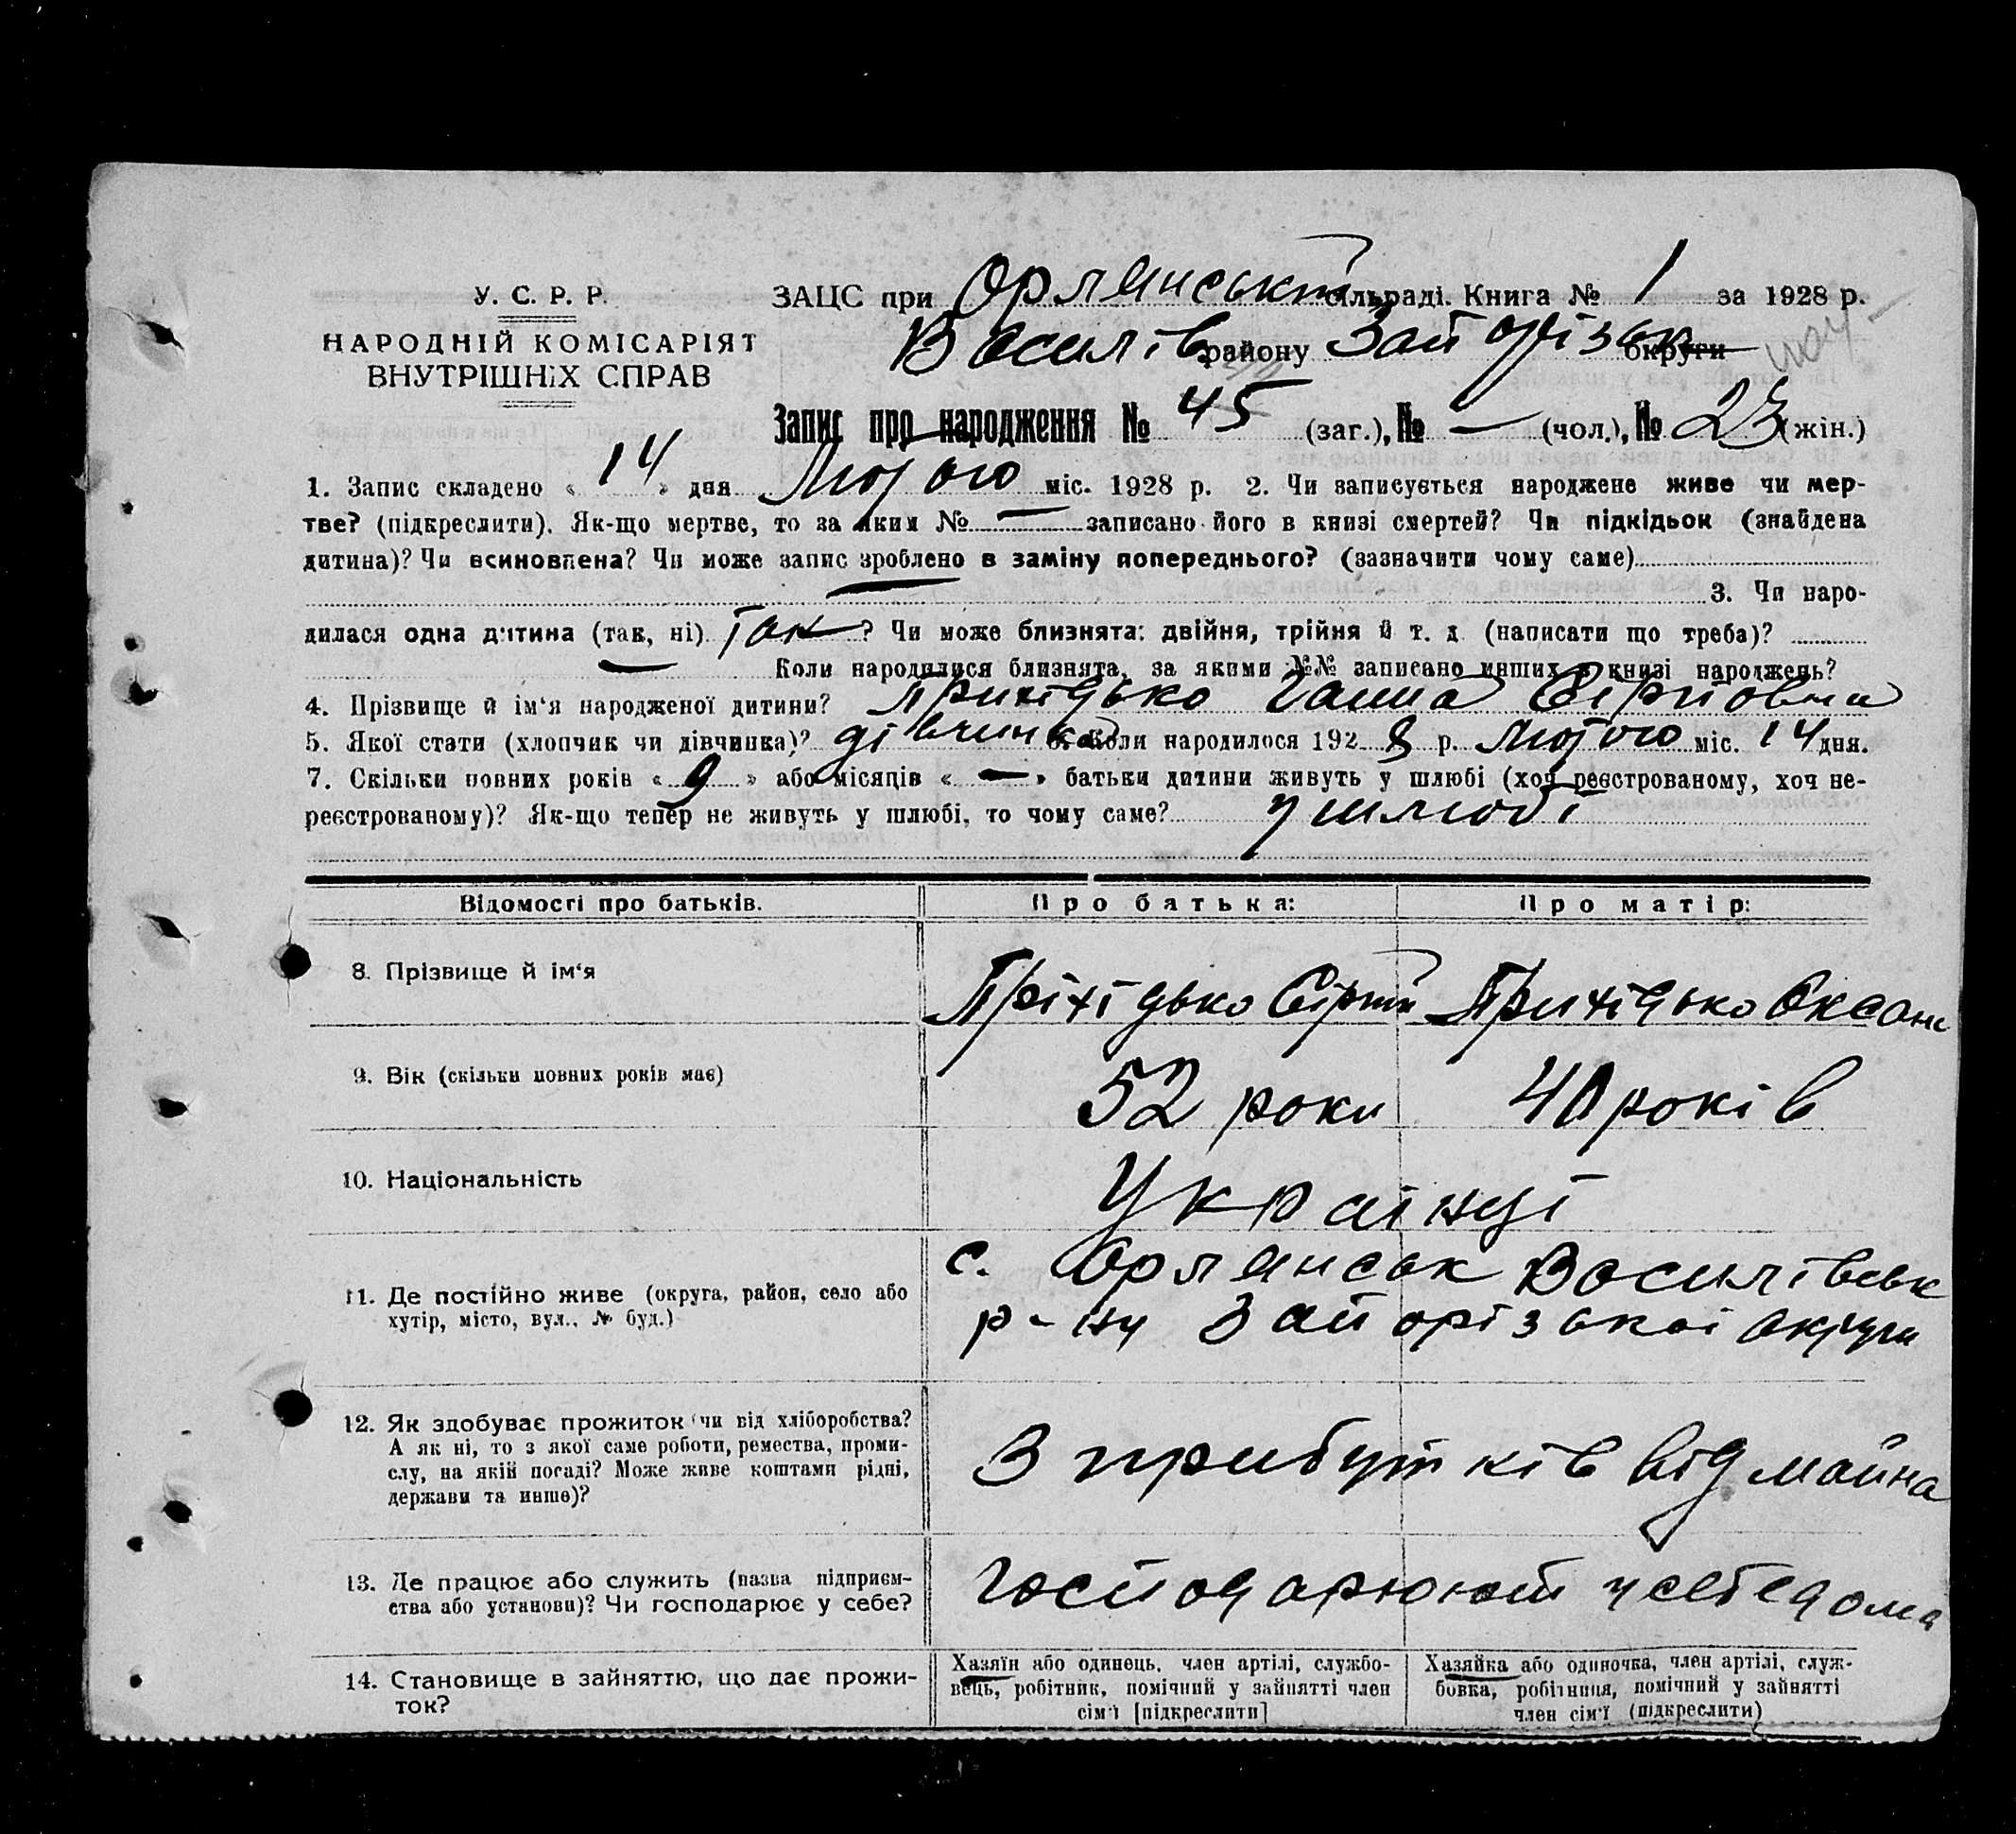 У. С. Р. Р.
НАРОДНІЙ КОМІСАРІЯТ
ВНУТРІШНіХ СПРАВ
ЗАЦС при Орлянській сільраді. Книга № 1 за 1928 р.
Василів району Запоріськ округи
Запис про народження № 45 (заг.), № — (чол.), № 23 (жін.)
1. Запис складено « 14 » дня Лютого міс. 1928 р. 2. Чи записується народжене живе чи мер-
тве? (підкреслити). Як-що мертве, то за яким № — записано його в книзі смертей? Чи підкідьок (знайдена
дитина)? Чи всиновлена? Чи може запис зроблено в заміну попереднього? (зазначити чому саме)
— 3. Чи наро-
дилася одна дитина (так, ні) так? Чи може близнята: двійня, трійня й т. д. (написати що треба)?
— Коли народилися близнята, за якими №№ записано инших в книзі народжень?
4. Прізвище й ім‘я народженої дитини? Прихідько Ганна Сергіовна
5. Якої стати (хлопчик чи дівчинка)? дівчинка 6. Коли народилося 1928 р. Лютого міс. 14 дня.
7. Скільки повних років « 9 » або місяців « — » батьки дитини живуть у шлюбі (хоч реєстрованому, хоч не-
реєстрованому)? Як-що тепер не живуть у шлюбі, то чому саме? у шлюбі
Відомості про батьків. Про батька: Про матір:
8. Прізвище й ім‘я Пріхідько Сергій Прихідько Оксана
9. Вік (скільки повних років має) 52 роки 40 років
10. Національність Українці
11. Де постійно живе (округа, район, село або
хутір, місто, вул., № буд.)
с. Орлянськ Василівськ
р-ну Запорізької округи
12. Як здобуває прожиток чи від хліборобства?
А як ні, то з якої саме роботи, ремества, проми-
слу, на якій посаді? Може живе коштами рідні,
держави та инше)?
З прибутків від майна
13. Де працює або служить (назва підприєм-
ства або установи)? Чи господарює у себе?
Господарюють у себе дома
14. Становище в зайняттю, що дає прожи-
ток?
Хазяїн або одинець, член артілі, службо-
вець, робітник, помічний у зайнятті член
сім‘ї [підкреслити]
Хазяйка або одиночка, член артілі, служ-
бовка, робітниця, помічний у зайнятті
член сім‘ї (підкреслити)